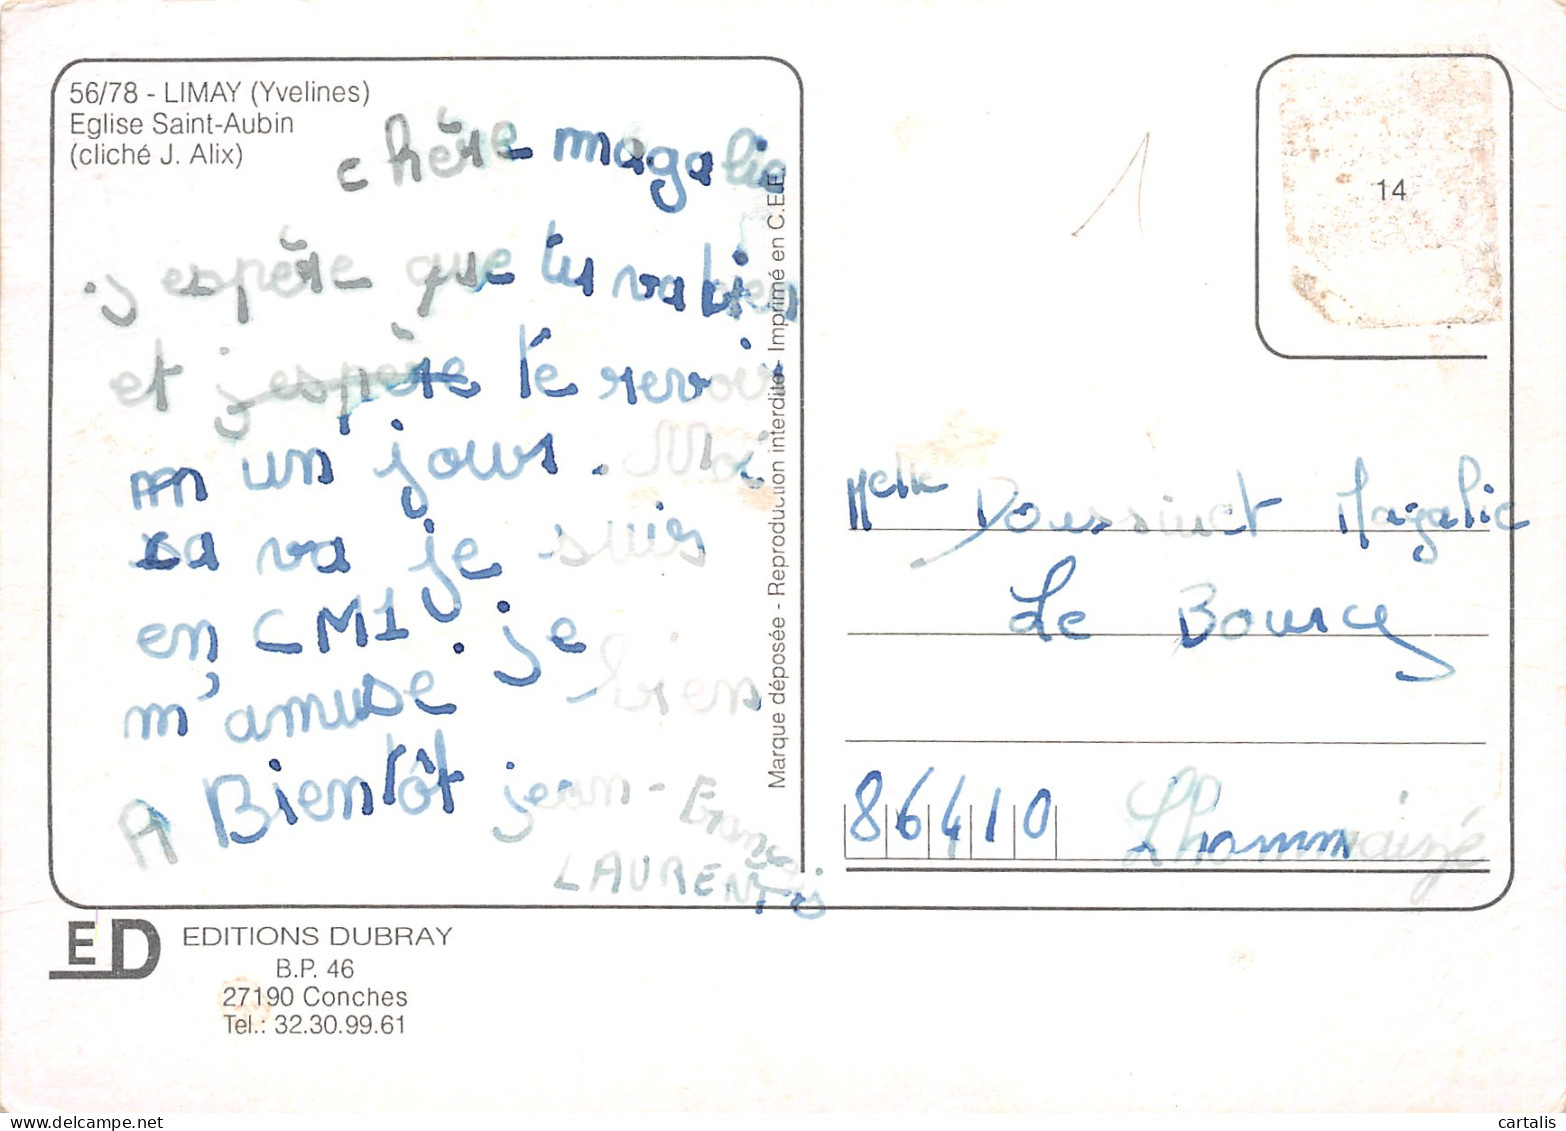 56/78 - LIMAY (Yvelines)
Eglise Saint-Aubin
(cliché J. Alix)
chère magalie
j espère que tu va bien
et j espère te revoir
un jour. Moi
sa va je suis
en CM1. je
m'amuse bien
A Bientôt jean-François
LAURENT
Marque déposée - Reproduction interdite - Imprimé en C.E.E.
ED
EDITIONS DUBRAY
B.P. 46
27190 Conches
Tel.: 32.30.99.61
1
14
Melle Magalie
Le Bourcy
86410 Lhommaizé
cartalis